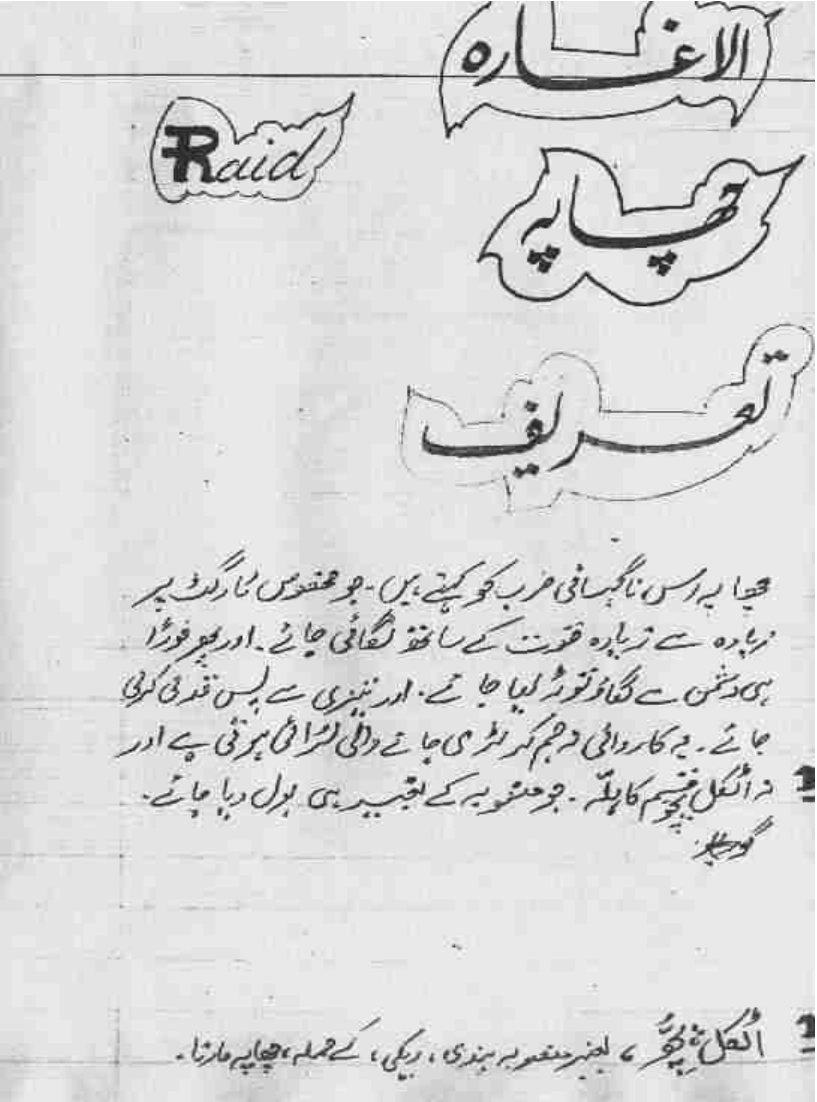 الاغارہ
Raid
چھاپہ
تعریف
چھاپہ اس ناگہانی ضرب کو کہتے ہیں۔ جو مخصوص ٹارگٹ پر
زیادہ سے زیادہ قوت کے ساتھ لگائی جائے۔ اور پھر فوراً
ہی دشمن سے لگاؤ توڑ لیا جائے۔ اور تیزی سے پس قدمی کرلی
جائے۔ یہ کاروائی نہ جم کر لڑی جانے والی لڑائی ہوتی ہے اور
نہ اٹکل پچو قسم کا ہلّہ۔ جو منصوبہ کے بغیر ہی بول دیا جائے۔
1
1 اٹکل پچّو، بغیر منصوبہ بندی، ریکی، کے حملہ، چھاپہ مارنا۔